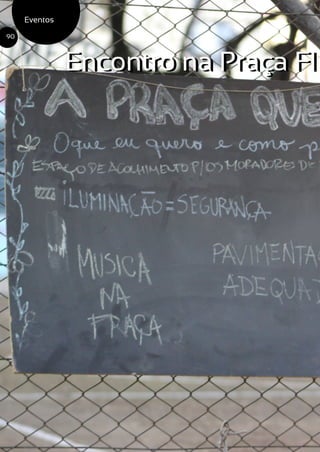 Eventos
90
Encontro na Praça Fl
A PRAÇA QUE
O que eu quero e como p
ESPAÇO DE ACOLHIMENTO P/OS MORADORES DE
ILUMINAÇÃO = SEGURANÇA
MUSICA
NA
PRAÇA
PAVIMENTA
ADEQUAD